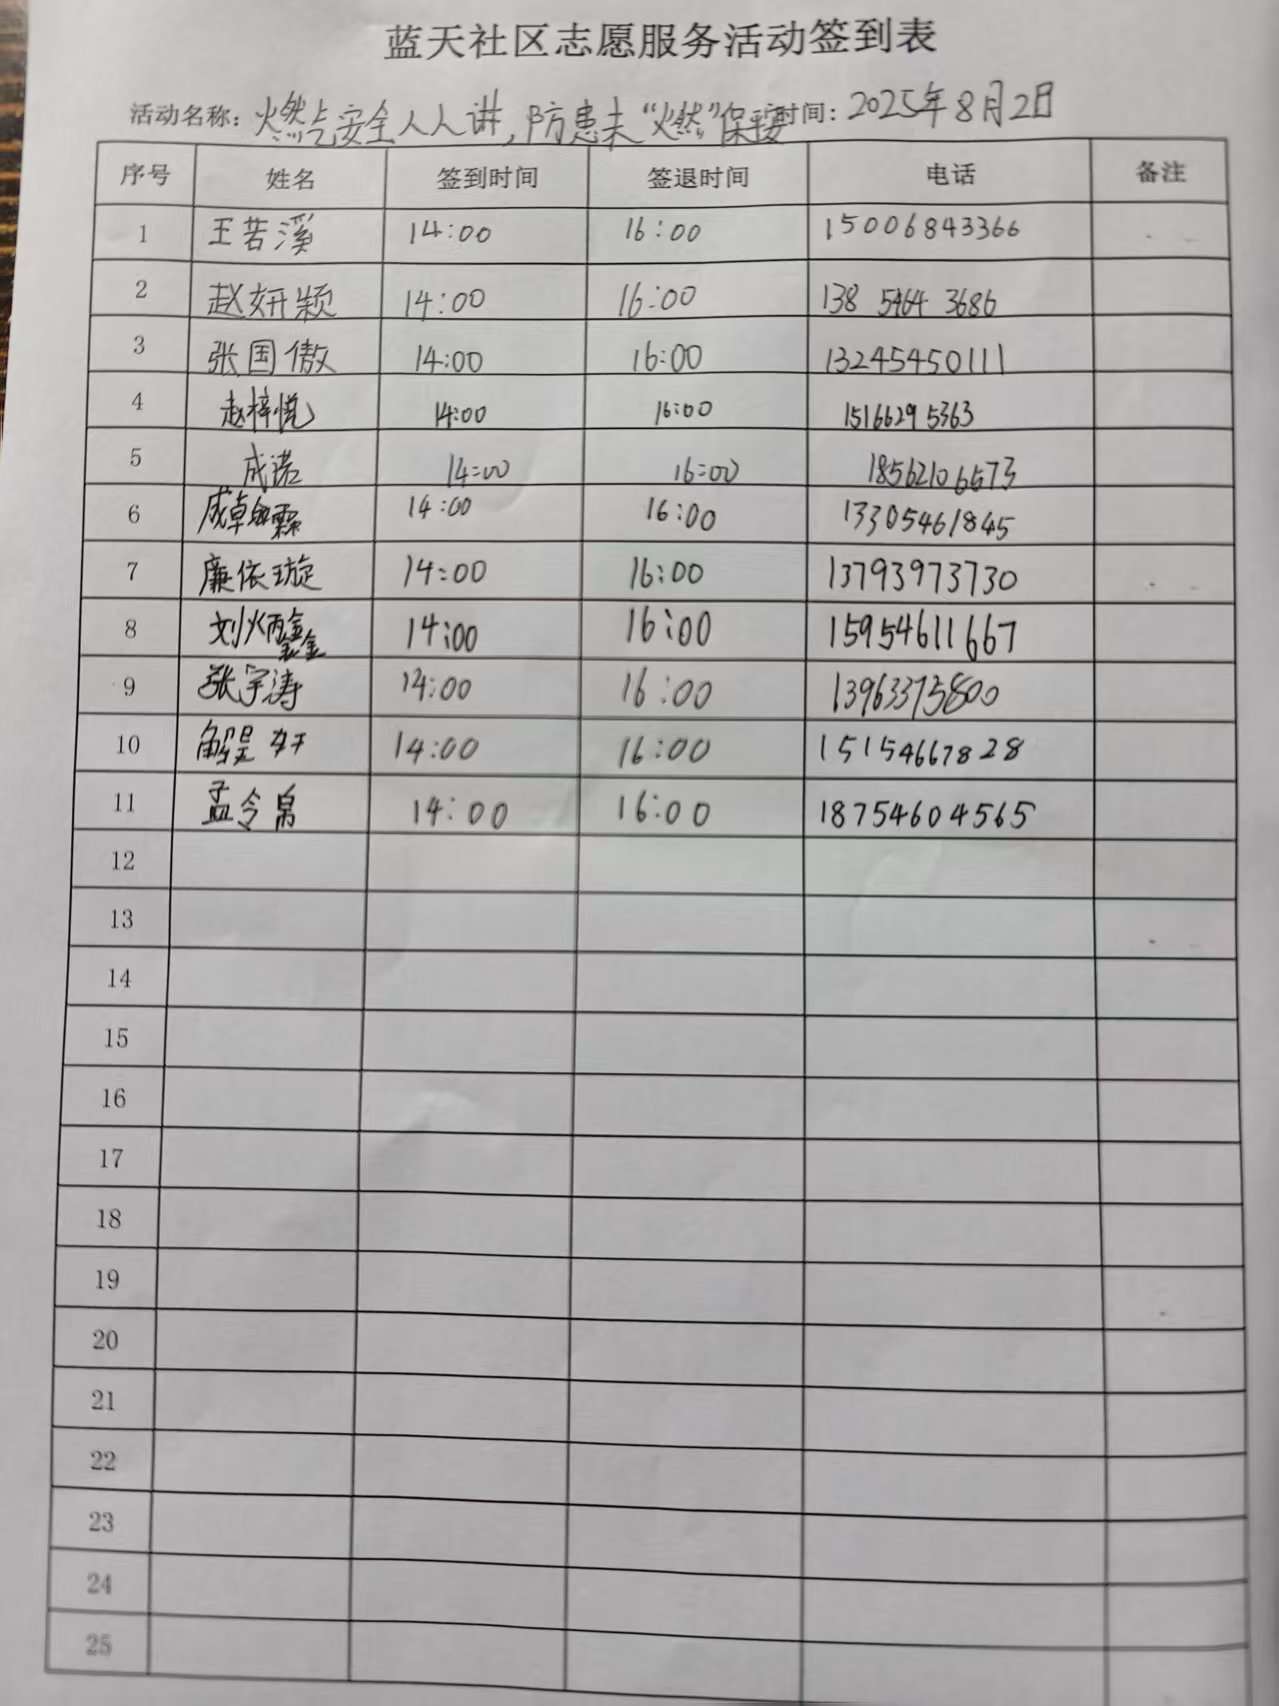 蓝天社区志愿服务活动签到表
活动名称：燃气安全人人讲，防患未“燃”保平安 时间：2025年8月2日
序号 姓名 签到时间 签退时间 电话 备注
1 王若溪 14:00 16:00 15006843366
2 赵妍颖 14:00 16:00 138 5464 3686
3 张国傲 14:00 16:00 13245450111
4 赵梓悦 14:00 16:00 15166295363
5 成诺 14:00 16:00 18562106573
6 成卓 霖 14:00 16:00 13305461845
7 廉依璇 14:00 16:00 13793973730
8 刘炳鑫 14:00 16:00 15954611667
9 张宇涛 14:00 16:00 13963375800
10 解昊轩 14:00 16:00 15154667828
11 孟令帛 14:00 16:00 18754604565
12
13
14
15
16
17
18
19
20
21
22
23
24
25